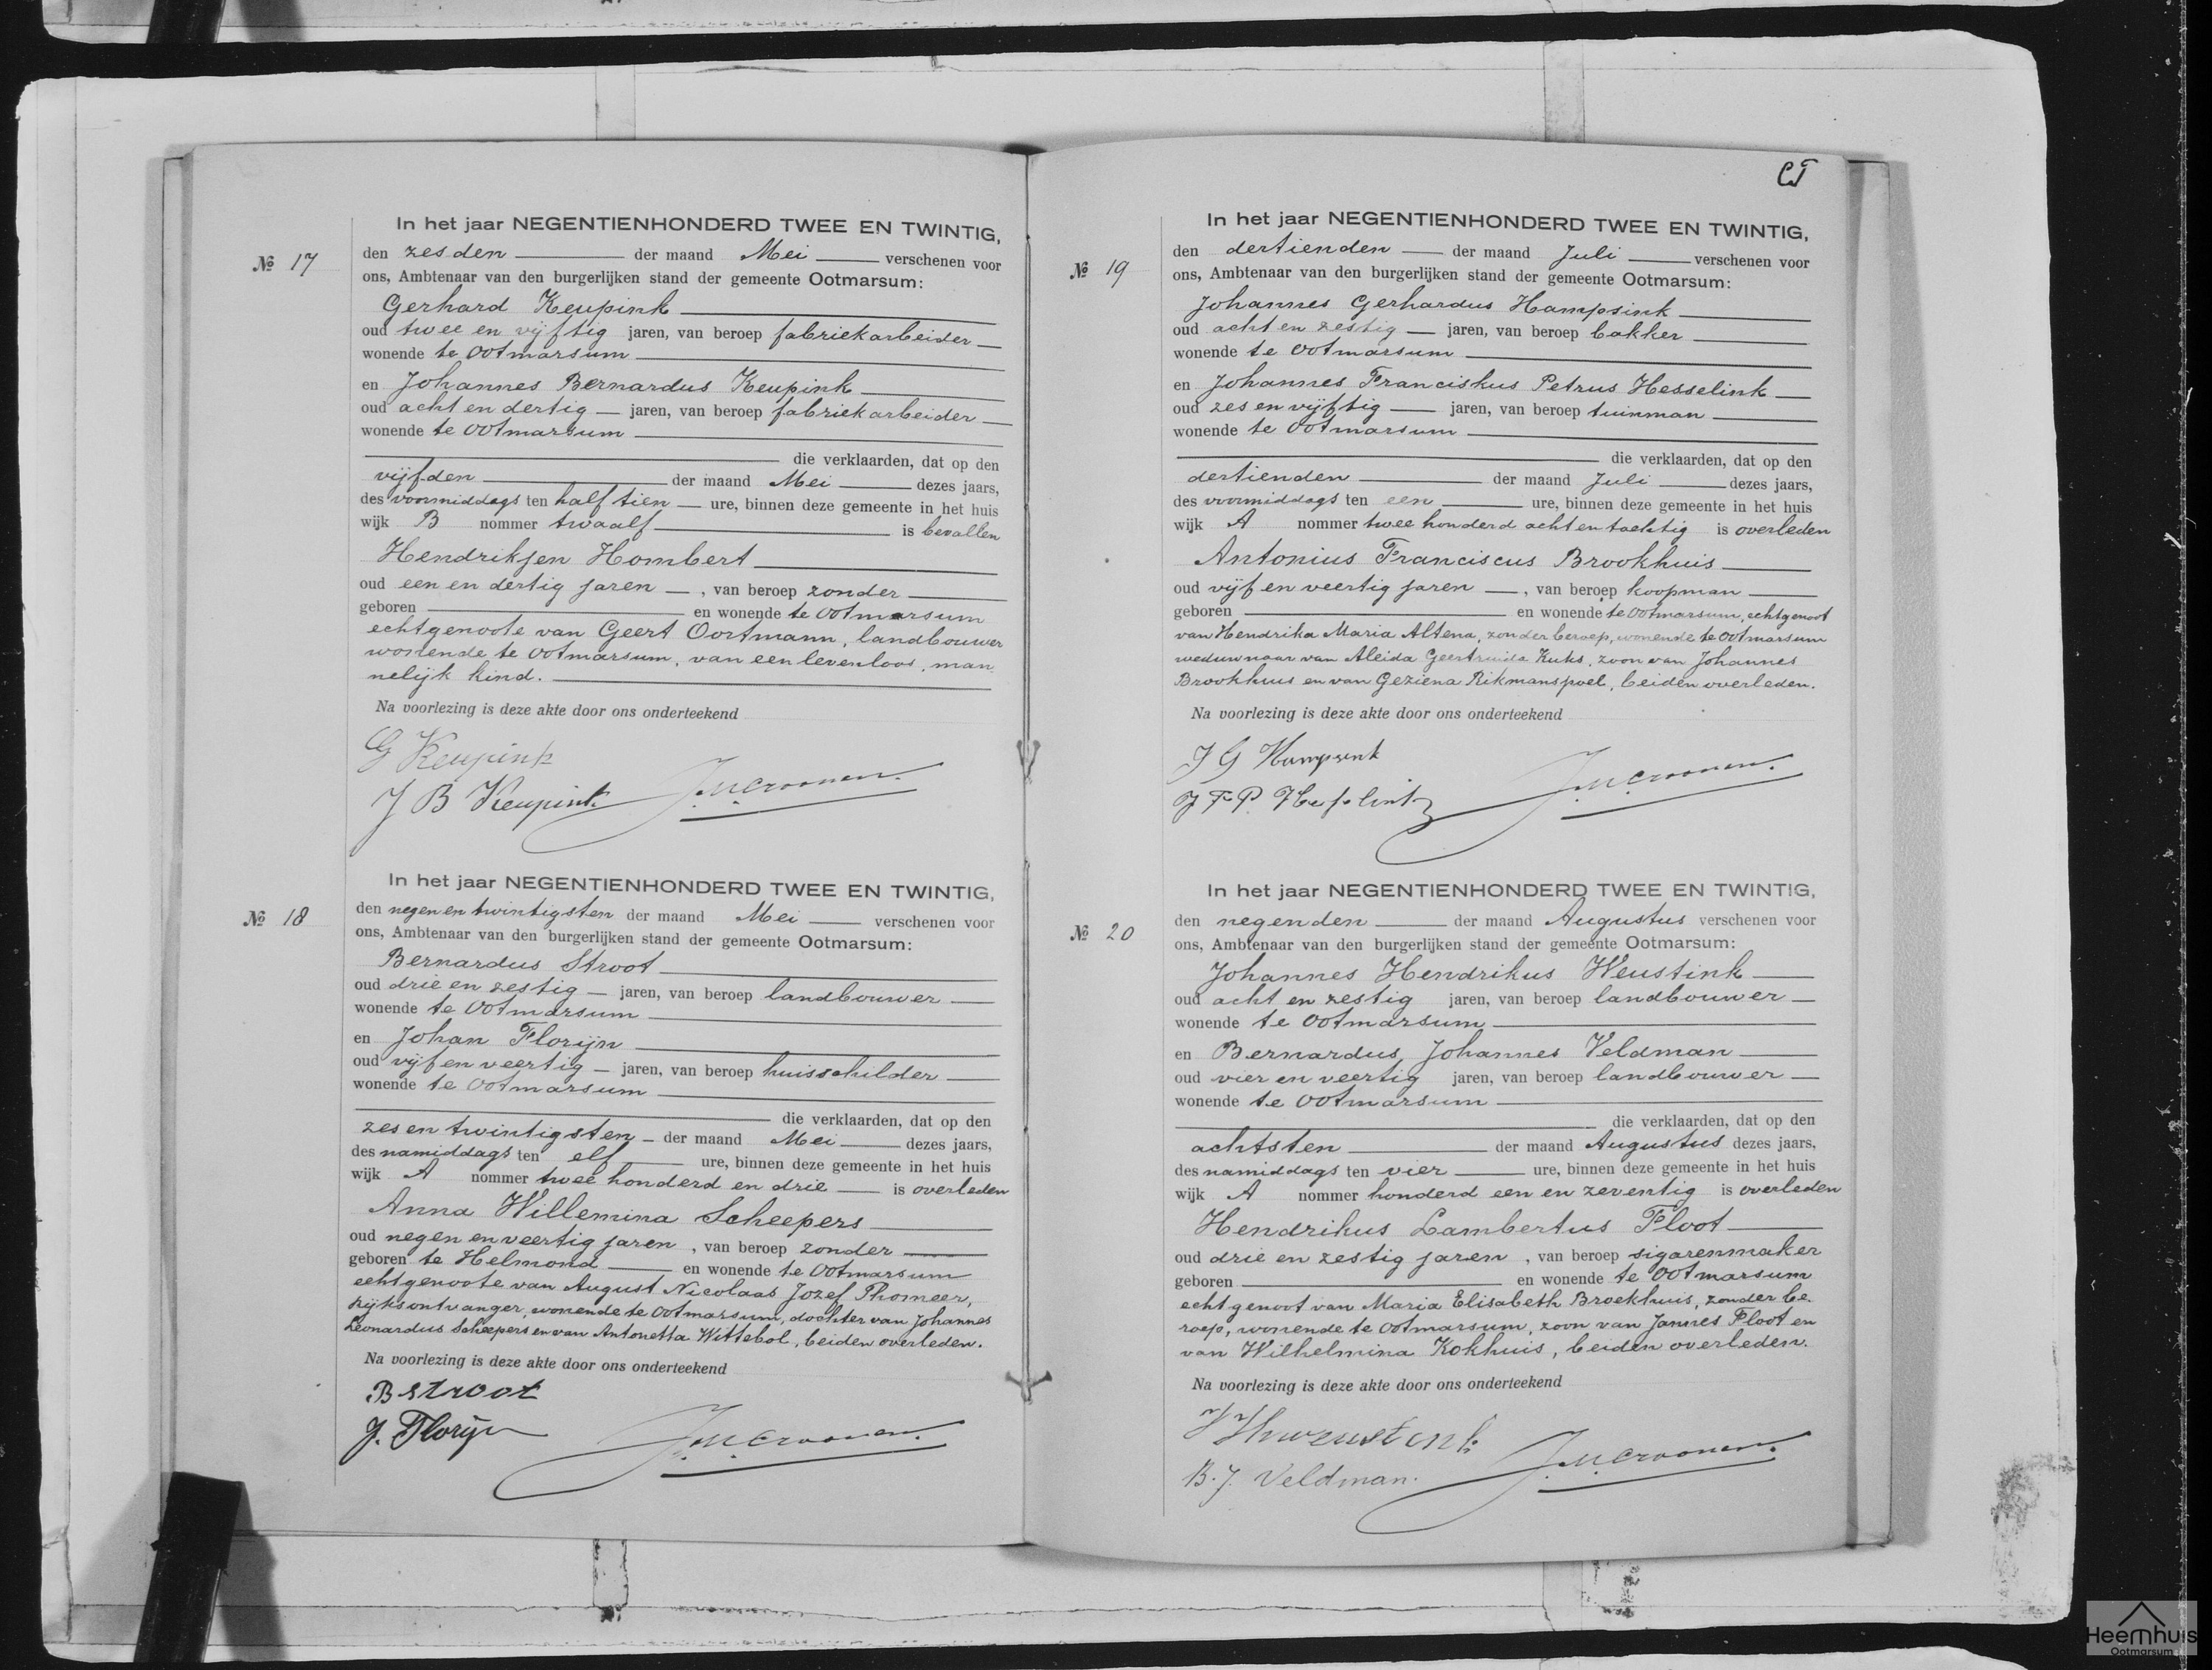 In het jaar NEGENTIENHONDERD TWEE EN TWINTIG,
№ 17
den zesden der maand Mei verschenen voor
ons, Ambtenaar van den burgerlijken stand der gemeente Ootmarsum:
Gerhard Keupink
oud twee en vijftig jaren, van beroep fabriekarbeider
wonende te Ootmarsum
en Johannes Bernardus Keupink
oud acht en dertig jaren, van beroep fabriekarbeider
wonende te Ootmarsum
die verklaarden, dat op den
vijfden der maand Mei dezes jaars,
des voormiddags ten half tien ure, binnen deze gemeente in het huis
wijk B nommer twaalf is bevallen
Hendrikjen Hombert
oud een en dertig jaren, van beroep zonder
geboren en wonende te Ootmarsum
echtgenoote van Geert Oortmann, landbouwer
wonende te Ootmarsum, van een levenloos, man
nelijk kind.
Na voorlezing is deze akte door ons onderteekend
G Keupink
J B Keupink J.M.Croonen.
In het jaar NEGENTIENHONDERD TWEE EN TWINTIG,
№ 18
den negen en twintigsten der maand Mei verschenen voor
ons, Ambtenaar van den burgerlijken stand der gemeente Ootmarsum:
Bernardus Stroot
oud drie en zestig jaren, van beroep landbouwer
wonende te Ootmarsum
en Johan Florijn
oud vijf en veertig jaren, van beroep huisschilder
wonende te Ootmarsum
die verklaarden, dat op den
zes en twintigsten der maand Mei dezes jaars,
des namiddags ten elf ure, binnen deze gemeente in het huis
wijk A nommer twee honderd en drie is overleden
Anna Willemina Scheepers
oud negen en veertig jaren, van beroep zonder
geboren te Helmond en wonende te Ootmarsum
echtgenoote van August Nicolaas Jozef Thomeer,
rijksontvanger, wonende te Ootmarsum, dochter van Johannes
Leonardus Scheepers en van Antonetta Wittebol, beiden overleden.
Na voorlezing is deze akte door ons onderteekend
B Stroot
J. Florijn J.M.Croonen.
In het jaar NEGENTIENHONDERD TWEE EN TWINTIG,
№ 19
den dertienden der maand Juli verschenen voor
ons, Ambtenaar van den burgerlijken stand der gemeente Ootmarsum:
Johannes Gerhardus Hampsink
oud acht en zestig jaren, van beroep bakker
wonende te Ootmarsum
en Johannes Franciskus Petrus Hesselink
oud zes en vijftig jaren, van beroep tuinman
wonende te Ootmarsum
die verklaarden, dat op den
dertienden der maand Juli dezes jaars,
des voormiddags ten een ure, binnen deze gemeente in het huis
wijk A nommer twee honderd acht en tachtig is overleden
Antonius Franciscus Brookhuis
oud vijf en veertig jaren, van beroep koopman
geboren en wonende te Ootmarsum, echtgenoot
van Hendrika Maria Altena, zonder beroep, wonende te Ootmarsum
weduwnaar van Aleida Geertruida Kuks, zoon van Johannes
Brookhuis en van Geziena Rikmanspoel, beiden overleden.
Na voorlezing is deze akte door ons onderteekend
J G Hampsink
J F P. Hesselink J.M.Croonen.
In het jaar NEGENTIENHONDERD TWEE EN TWINTIG,
№ 20
den negenden der maand Augustus verschenen voor
ons, Ambtenaar van den burgerlijken stand der gemeente Ootmarsum:
Johannes Hendrikus Weustink
oud acht en zestig jaren, van beroep landbouwer
wonende te Ootmarsum
en Bernardus Johannes Veldman
oud vier en veertig jaren, van beroep landbouwer
wonende te Ootmarsum
die verklaarden, dat op den
achtsten der maand Augustus dezes jaars,
des namiddags ten vier ure, binnen deze gemeente in het huis
wijk A nommer honderd een en zeventig is overleden
Hendrikus Lambertus Floot
oud drie en zestig jaren, van beroep sigarenmaker
geboren en wonende te Ootmarsum
echtgenoot van Maria Elisabeth Broekhuis, zonder be-
roep, wonende te Ootmarsum, zoon van Jannes Floot en
van Wilhelmina Kokhuis, beiden overleden.
Na voorlezing is deze akte door ons onderteekend
B.J. Veldman. J.M.Croonen.
Heemhuis
Ootmarsum